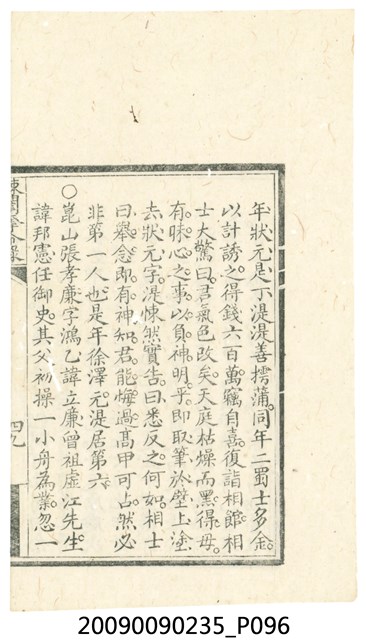 年狀元是丁湜湜善摴蒲同年二蜀士多金
以計誘之得錢六百萬竊自喜復詣相館相
士大驚曰君氣色改矣天庭枯燥而黑得毋
有昧心之事以負神明乎即取筆於壁上塗
去狀元字湜悚然實告曰悉反之何如相士
曰舉念即有神知君能悔過高甲可占然必
非第一人也是年徐澤元湜居第六
○崑山張孝廉字鴻乙諱立廉曾祖虛江先生
諱邦憲任御史其父初操一小舟為業忽一
四九
20090090235_P096